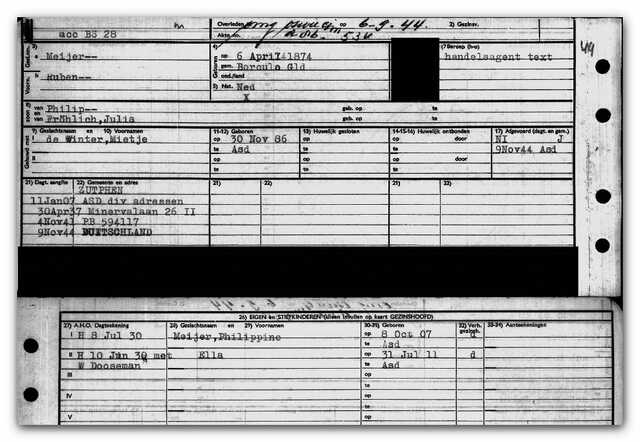 acc BS 28
Overleden op 6-9.44. 2) Gezinv.
Akte no. 534
49
3)
Geslsn. Meijer--
Voorn. Ruben--
4)
op 6 April 1874
gem. Borculo Gld
ond./land
5) Nat. Ned
X
7) Beroep (h-o)
handelsagent text
zoon van Philip-- geb. op te
en van Fröhlich, Julia geb. op te
Gehuwd met 9) Geslachtsnaam en 10) Voornamen 11-12) Geboren 13) Huwelijk gesloten 14-15-16) Huwelijk ontbonden 17) Afgevoerd (dagt. en gem.)
I de Winter, Mietje op 30 Nov 86 op op door NI J
te Asd te te 9Nov44 Asd
II op op op door
te te te
21) Dagt. aangifte 22) Gemeente en adres 21) 22) 21) 22)
ZUTPHEN
11Jan07 ASD div adressen
30Apr37 Minervalaan 26 II
4Nov41 PB 594117
9Nov44 DUITSCHLAND
26) EIGEN en STIEFKINDEREN (alleen invullen op kaart GEZINSHOOFD)
27) A.H.O. Dagteekening 28) Geslachtsnaam en 29) Voornamen 30-31) Geboren 32) Verh. gezinsh. 33-34) Aanteekeningen
I H 8 Jul 30 Meijer, Philippine op 8 Oct 07 d
te Asd
II H 10 Jun 30 met Ella op 31 Jul 11 d
W Dooseman te Asd
III op
te
IV op
te
V op
te